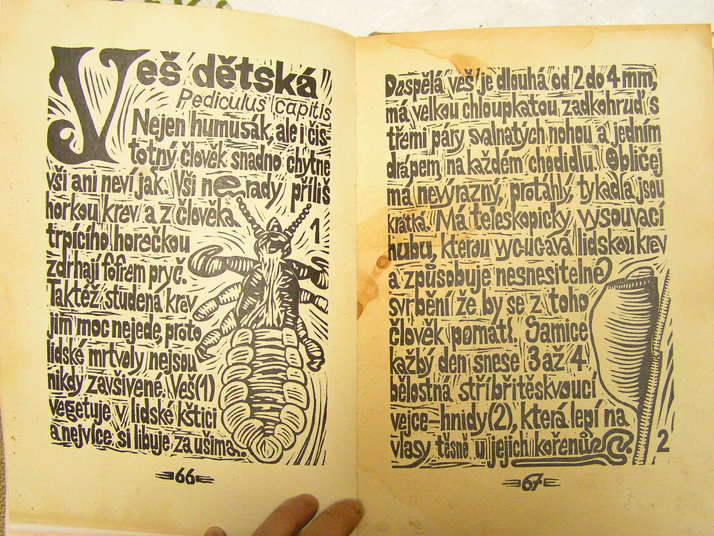 Veš dětská
Pediculus capitis
Nejen humusák, ale i čis-
totný člověk snadno chytne
vši ani neví jak. Vši nerady příliš
horkou krev a z člověka
trpícího horečkou
zdrhají fofrem pryč.
Taktéž studená krev
jim moc nejede, proto
lidské mrtvoly nejsou
nikdy zavšivené. Veš(1)
vegetuje v lidské kštici
a nejvíce si libuje za ušima.
1
66
Dospělá veš je dlouhá od 2 do 4 mm,
má velkou chloupkatou zadkohruď s
třemi páry svalnatých nohou a jedním
drápem na každém chodidlu. Obličej
má nevýrazný, protáhlý, tykadla jsou
krátká. Má teleskopicky vysouvací
hubu, kterou vycucává lidskou krev
a způsobuje nesnesitelné
svrbění že by se z toho
člověk pomátl. Samice
kažbý den snese 3 až 4
bělostná stříbřitěskvoucí
vejce-hnidy(2), která lepí na
vlasy těsně u jejich kořenů.
2
67